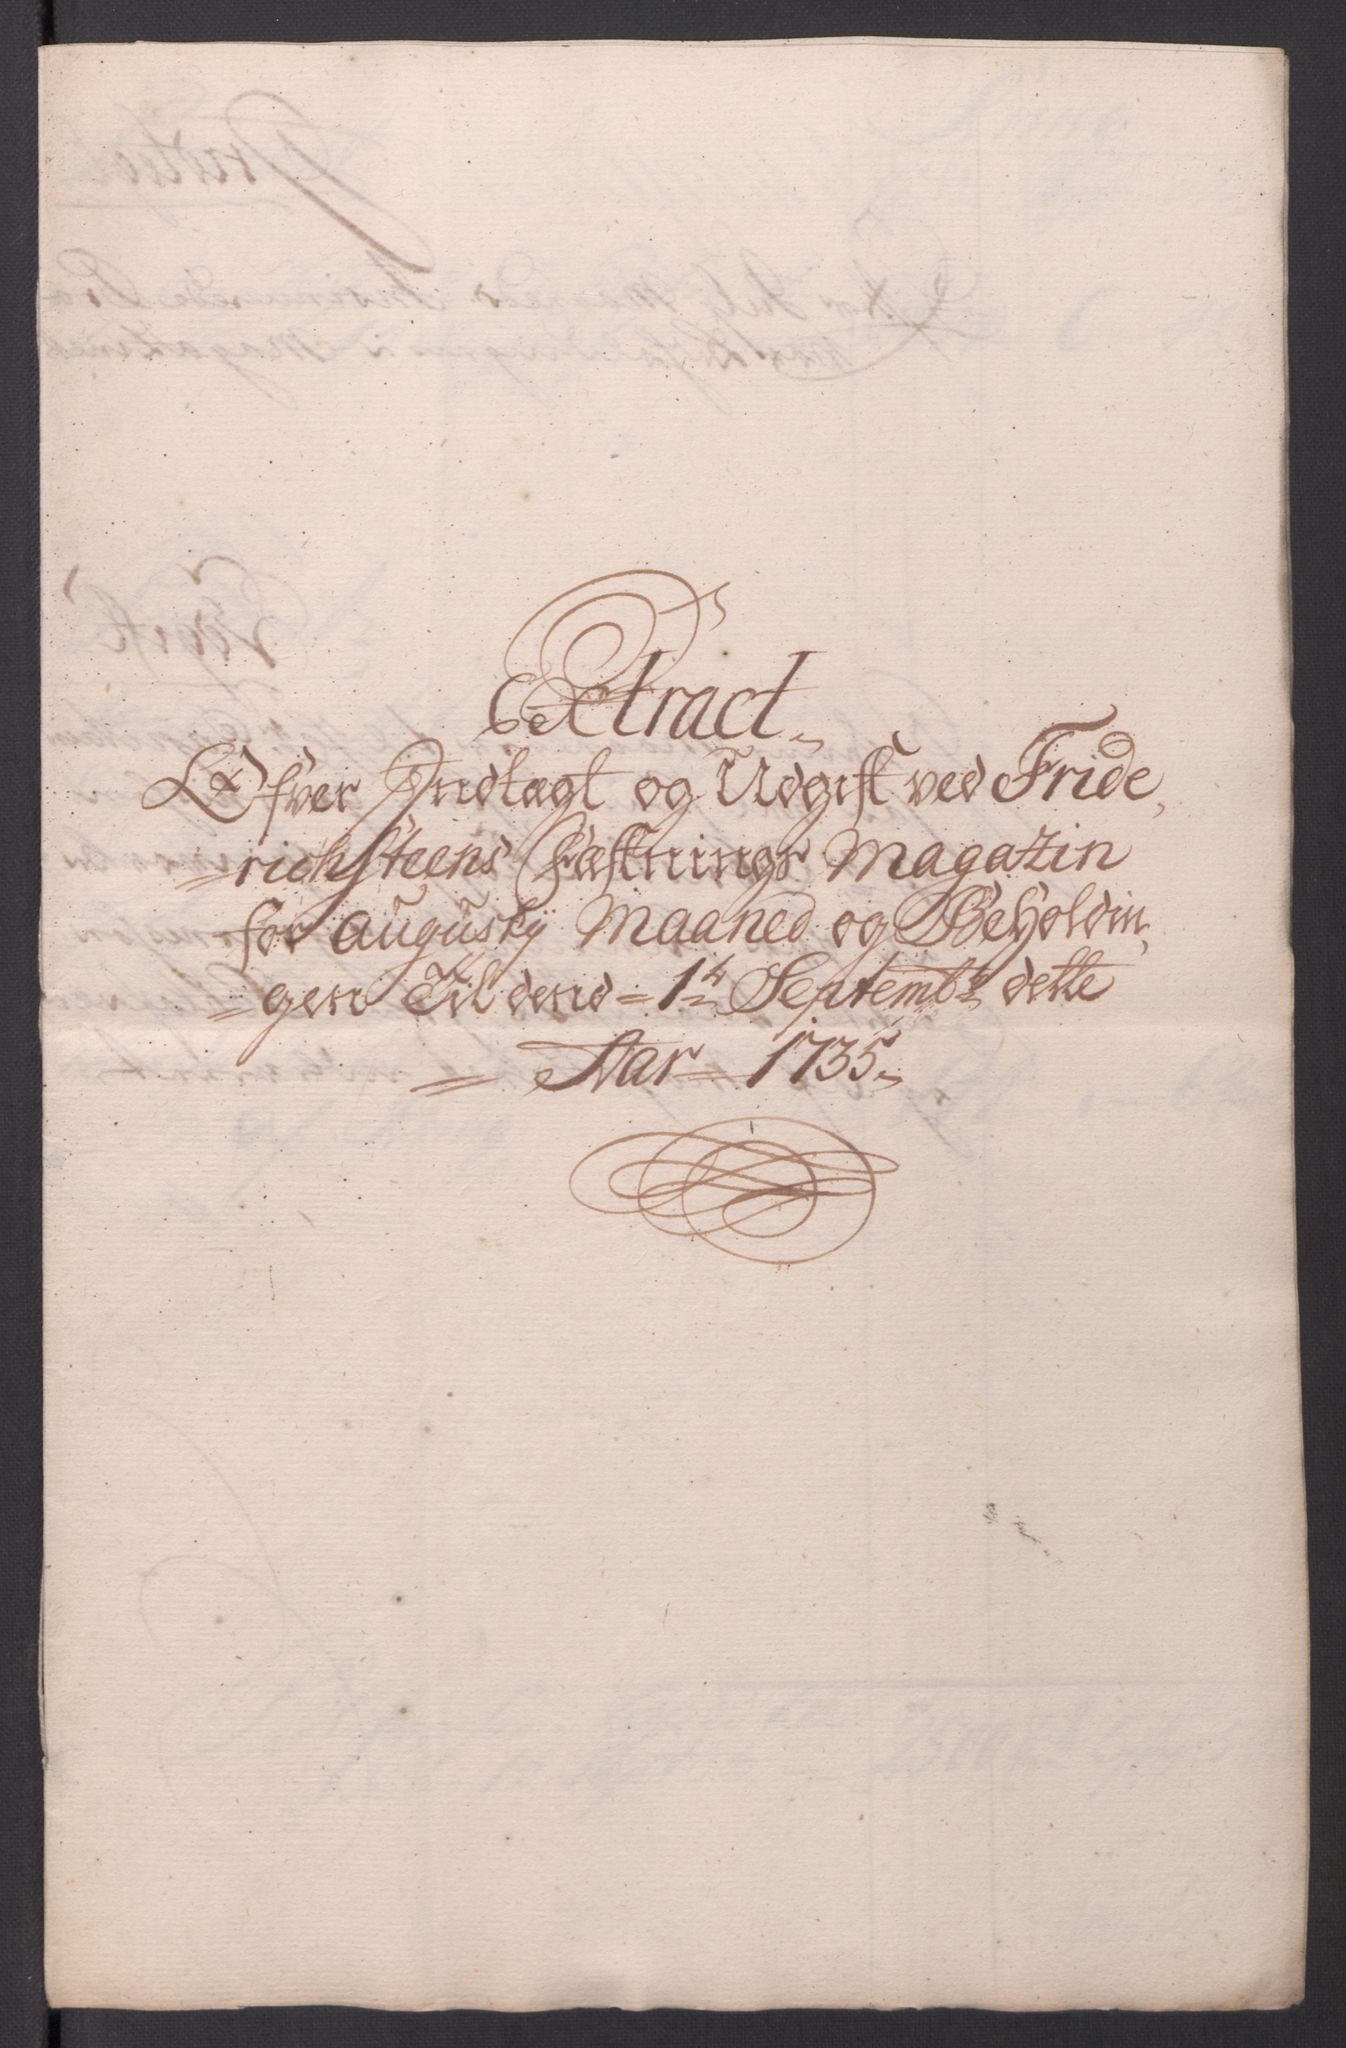 Extract
Ofver Indtægt og Udgift ved Fride,
=richsteens Fæstnings Magazin
for augustij Maaned og Beholdin,
=gen Til dend =1te Septembr dette
= Aar = 1735.